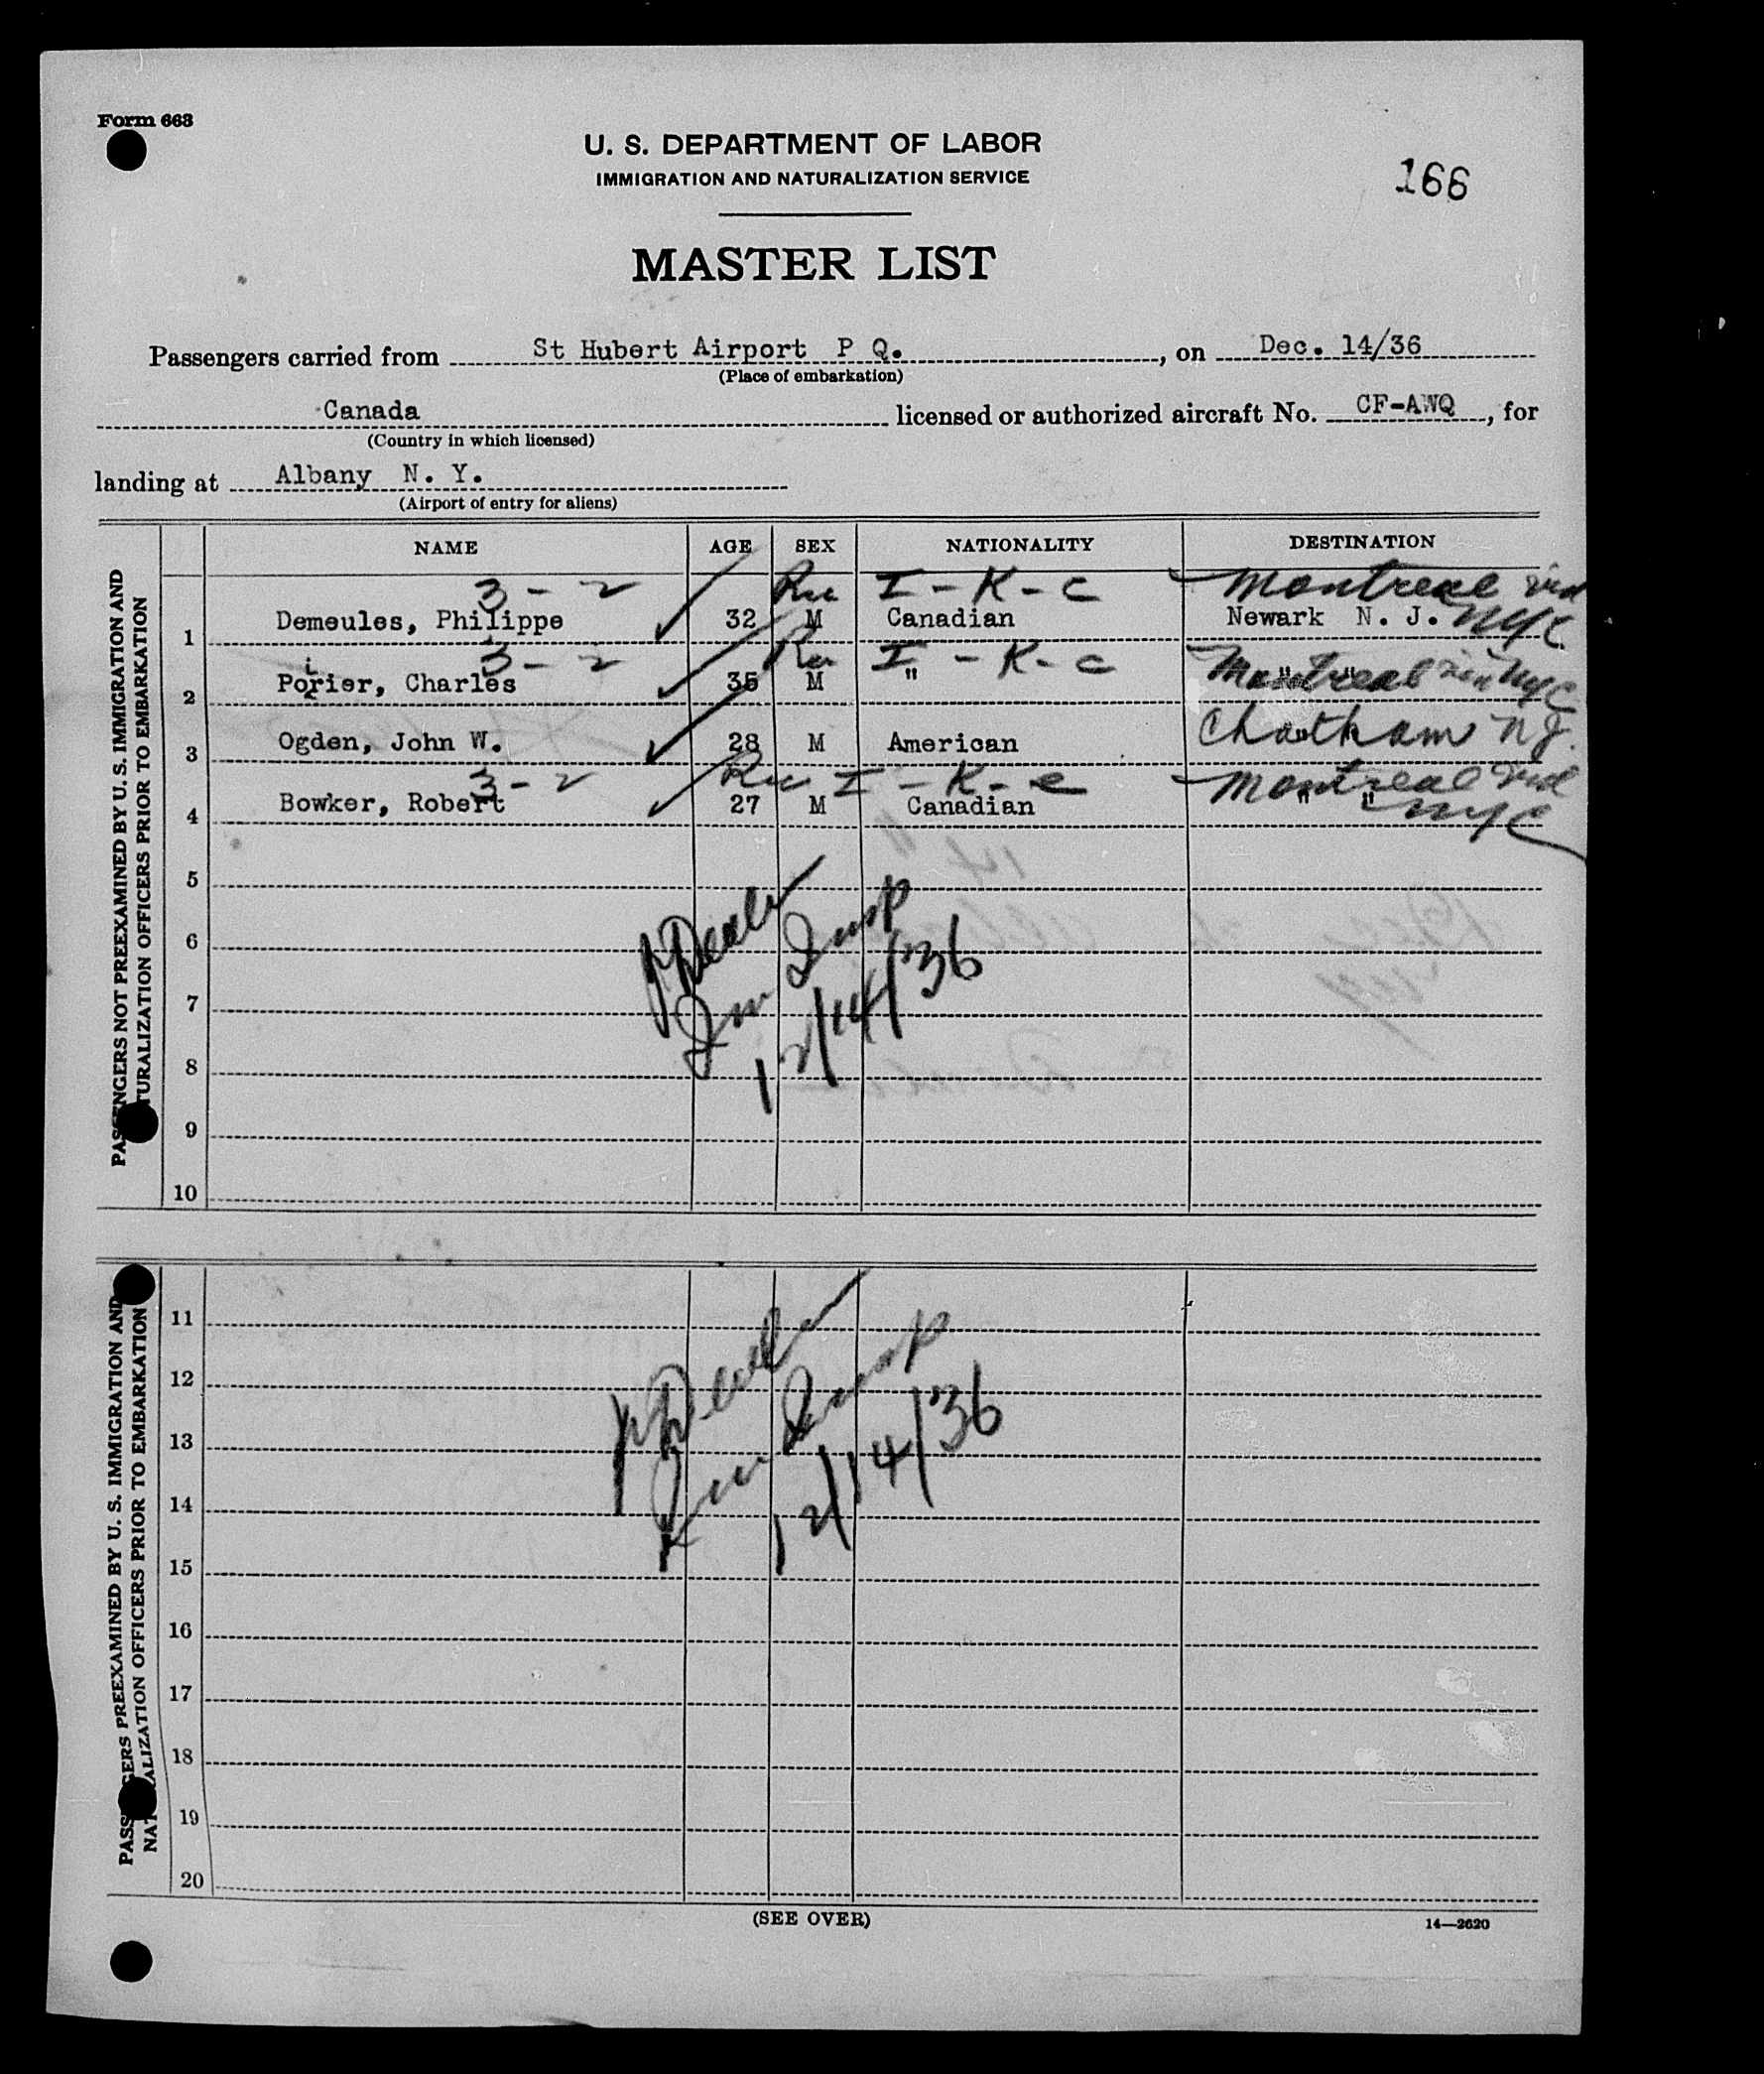 Form 663
U. S. DEPARTMENT OF LABOR
IMMIGRATION AND NATURALIZATION SERVICE
166
MASTER LIST
Passengers carried from St Hubert Airport P Q. , on Dec. 14/36
(Place of embarkation)
Canada licensed or authorized aircraft No. CF-AWQ , for
(Country in which licensed)
landing at Albany N. Y.
(Airport of entry for aliens)
NAME AGE SEX NATIONALITY DESTINATION
PASSENGERS NOT PREEXAMINED BY U. S. IMMIGRATION AND
NATURALIZATION OFFICERS PRIOR TO EMBARKATION
3 - 2 I - K - C Montreal via
1 Demeules, Philippe 32 M Canadian Newark N. J. NYC
i 3 - 2 I - K - C Montreal via NYC
2 Porier, Charles 35 M " " "
Chatham NJ.
3 Ogden, John W. 28 M American
3 - 2 I - K - C Montreal via
4 Bowker, Robert 27 M Canadian " "
NYC
5
6
Imm Insp
7
12/14/36
8
9
10
PASSENGERS PREEXAMINED BY U. S. IMMIGRATION AND
NATURALIZATION OFFICERS PRIOR TO EMBARKATION
11
12
13
Imm Insp
14
12/14/36
15
16
17
18
19
20
(SEE OVER)
14—2620